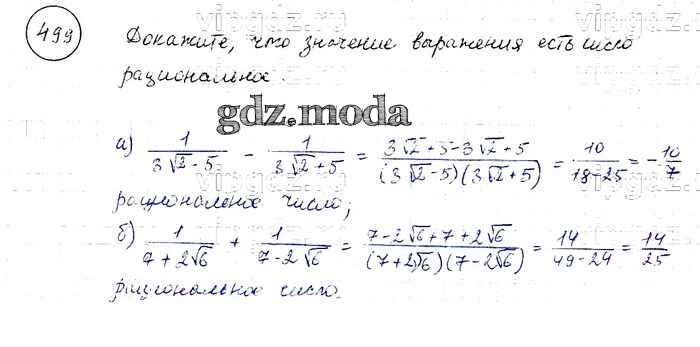 499
Докажите, что значение выражения есть число
рациональное.
gdz.moda
а) 1/(3√2-5) - 1/(3√2+5) = (3√2+5-3√2+5)/((3√2-5)(3√2+5)) = 10/(18-25) = -10/7
рациональное число;
б) 1/(7+2√6) + 1/(7-2√6) = (7-2√6+7+2√6)/((7+2√6)(7-2√6)) = 14/(49-24) = 14/25
рациональное число.